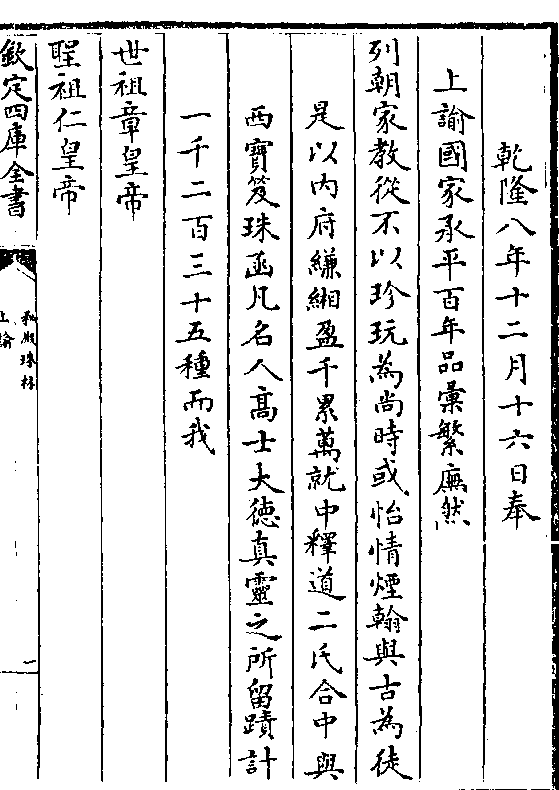 乾隆八年十二月十六日奉
上諭國家承平百年品彚繁廡然
列朝家教從不以珍玩為尚時或怡情煙翰與古為徒
是以内府縑緗盈千累萬就中釋道二氏合中與
西寶笈珠函凡名人髙士大徳真靈之所留蹟計
一千二百三十五種而我
世祖章皇帝
聖祖仁皇帝
欽定四庫全書
秘殿珠林
上諭
一